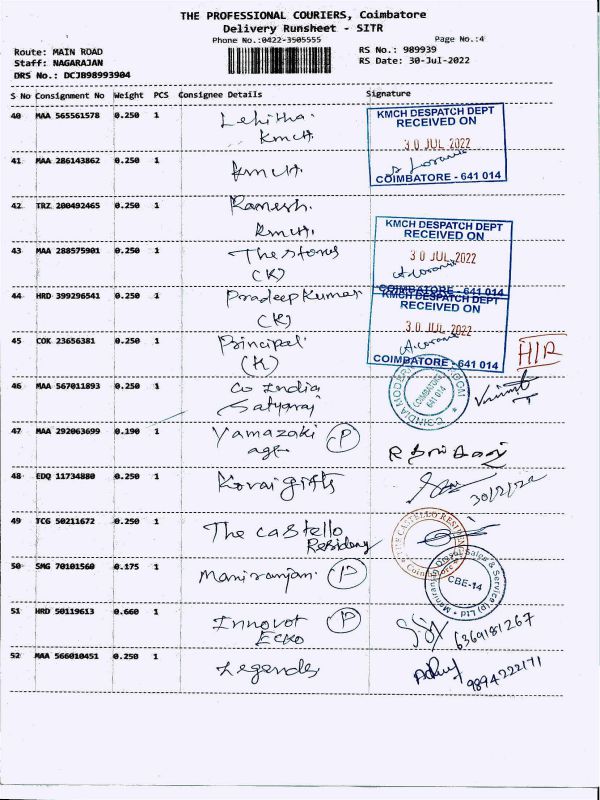 THE PROFESSIONAL COURIERS, Coimbatore
Delivery Runsheet - SITR
Phone No.:0422-3505555
Page No.:4
Route: MAIN ROAD
RS No.: 989939
Staff: NAGARAJAN
RS Date: 30-Jul-2022
DRS No.: DCJB98993904
S No Consignment No Weight PCS Consignee Details Signature
40 MAA 565561578 0.250 1 Lekitha.
KMCH
KMCH DESPATCH DEPT
RECEIVED ON
30 JUL 2022
COIMBATORE - 641 014
41 MAA 286143862 0.250 1 KMCH
42 TRZ 200492465 0.250 1 Ramesh.
KMCH.
KMCH DESPATCH DEPT
RECEIVED ON
30 JUL 2022
COIMBATORE - 641 014
43 MAA 288575901 0.250 1 The stores
(K)
44 HRD 399296541 0.250 1 Pradeep Kumar
(K)
KMCH DESPATCH DEPT
RECEIVED ON
30 JUL 2022
COIMBATORE - 641 014
45 COK 23656381 0.250 1 Principal
(K)
H/R
46 MAA 567011893 0.250 1 Co India
Satyaraj
COIMBATORE
641 014
47 MAA 292063699 0.190 1 Yamazaki (P)
age.
48 EDQ 11734880 0.250 1 Kovai gifts
49 TCG 50211672 0.250 1 The castello
Residency
THE CASTELLO RESIDENCY
Coimbatore
50 SMG 70101560 0.175 1 Maniranjan. (P)
Maniranjan Diesel Sales & Service (P) Ltd
CBE-14
51 HRD 50119613 0.660 1 Innovot (P)
ECKO
6369181267
52 MAA 566010451 0.250 1 Legendes
9894222171